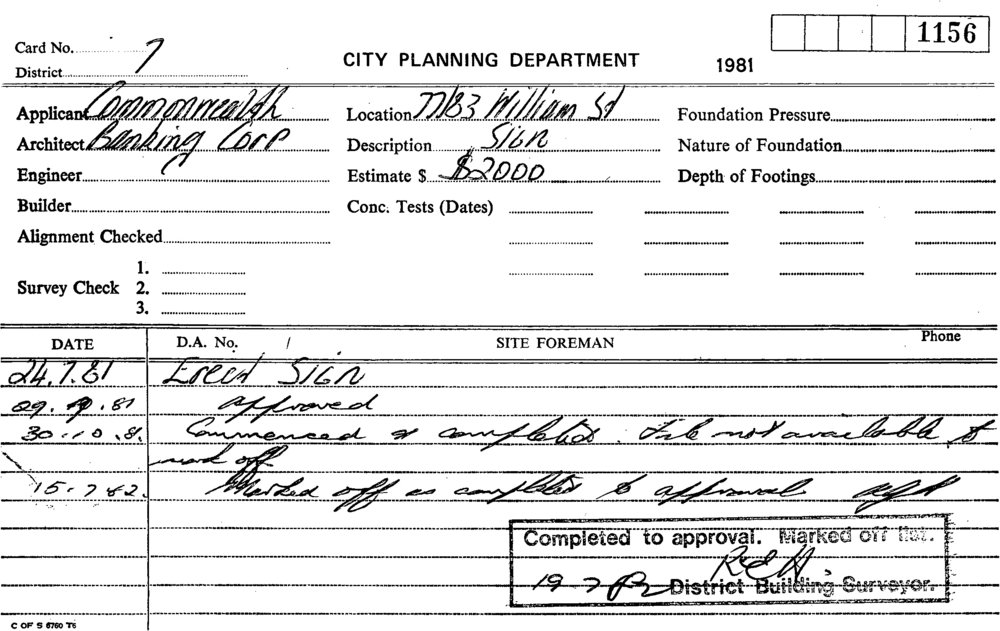 1156
Card No. 7
District
CITY PLANNING DEPARTMENT 1981
Applicant Commonwealth Location 77/83 William St Foundation Pressure
Architect Banking Corp Description SIGN Nature of Foundation
Engineer Estimate $ $2000 Depth of Footings
Builder Conc. Tests (Dates)
Alignment Checked
1.
Survey Check 2.
3.
DATE D.A. No. / SITE FOREMAN Phone
24.7.81 Erect SIGN
29. 9.81 approved
30.10.8. Commenced & completed. File not available to
mark off.
15.7.82. Marked off as completed to approval
Completed to approval. Marked off list.
19 7 82 District Building Surveyor.
C OF S 6760 T6